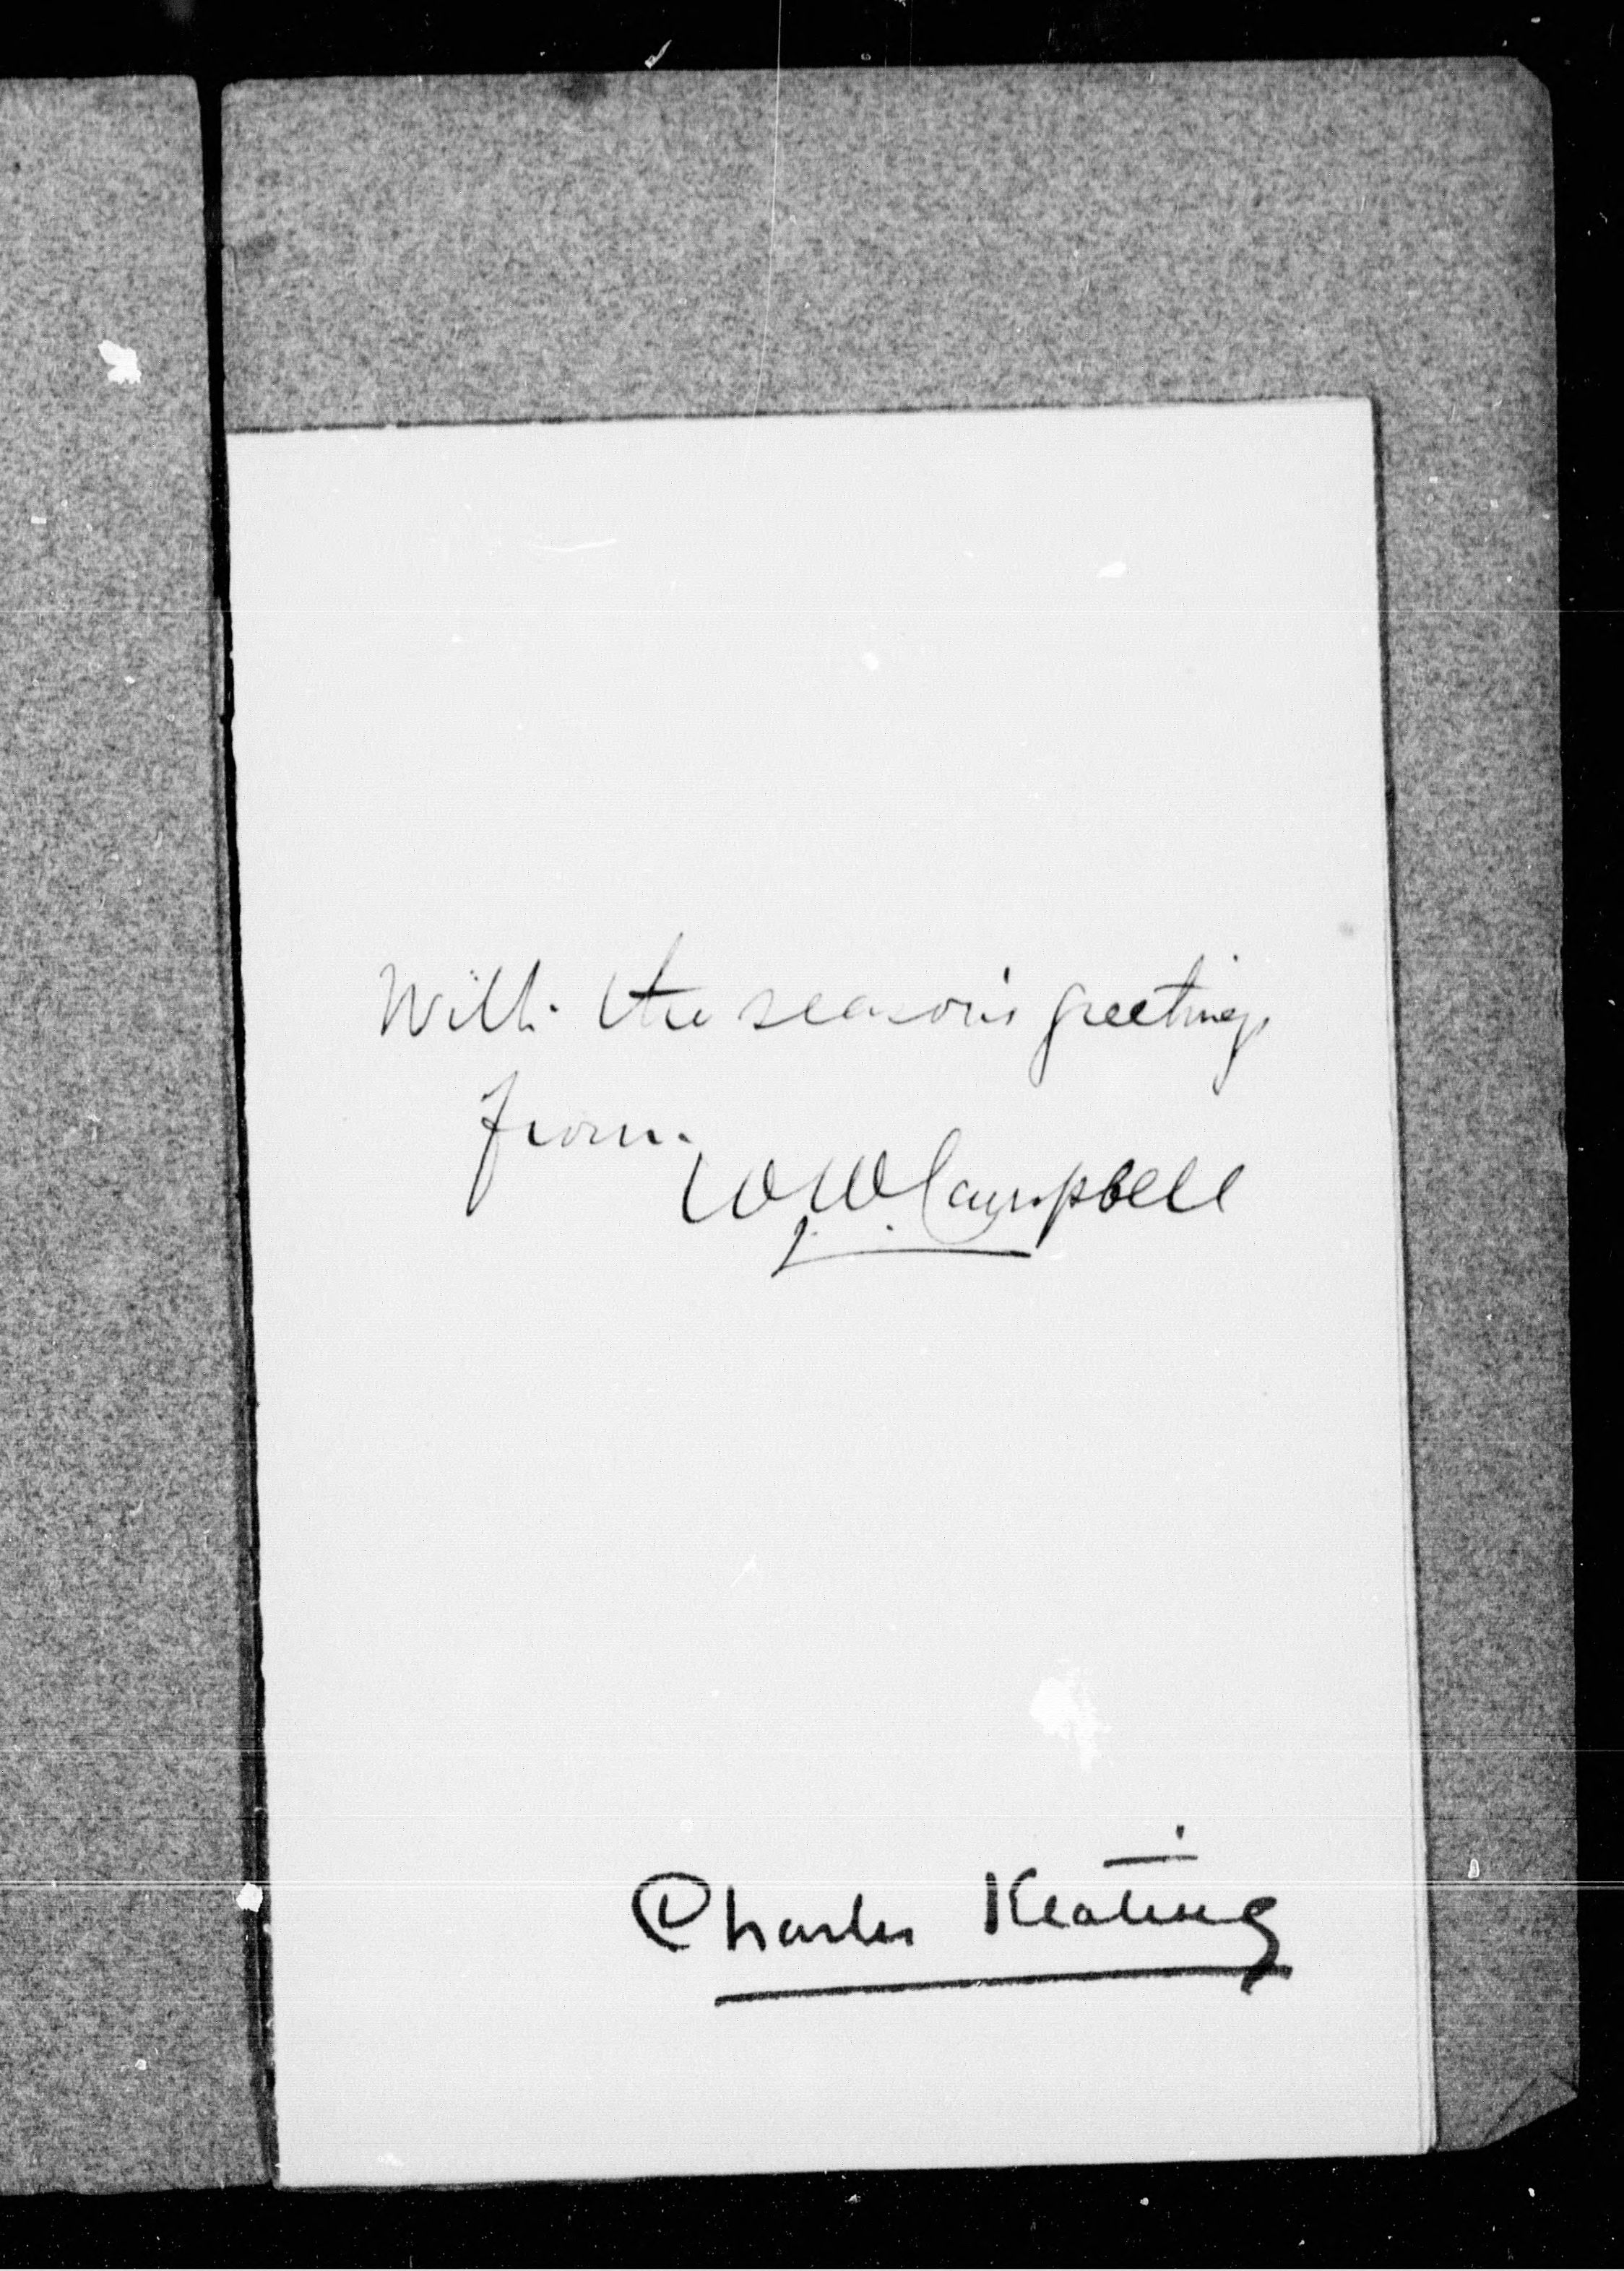 With the season's greetings
from
W W Campbell
Charles Keating